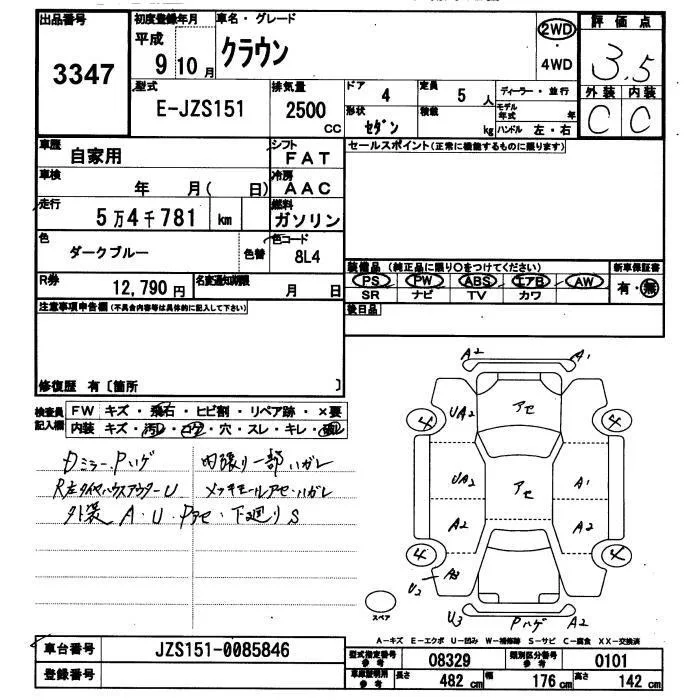 出品番号 3347
初度登録年月 平成 9年 10月
車名・グレード クラウン
2WD ・ 4WD
評価点 3.5
外装 C 内装 C
型式 E-JZS151
排気量 2500 CC
ドア 4
定員 5 人
ディーラー・並行
形状 セダン
積載 kg
モデル年式 年
ハンドル 左・右
車歴 自家用
シフト FAT
セールスポイント(正常に機能するものに限ります)
車検 年 月( 日)
冷房 AAC
走行 5万4千781 km
燃料 ガソリン
色 ダークブルー
色替
色コード 8L4
装備品 (純正品に限り○をつけてください)
新車保証書 有・無
PS PW ABS エアB AW
SR ナビ TV カワ
R券 12,790 円
名変通知期限 月 日
後日品
注意事項申告欄(不具合内容等は具体的に記入して下さい)
修復歴 有〔箇所 〕
検査員記入欄
FW キズ・飛石・ヒビ割・リペア跡・×要
内装 キズ・汚レ・コゲ・穴・スレ・キレ・
Dミラー.Pハゲ 内張り一部ハガレ
R左タイヤハウスアウターU メッキモールアセ・ハガレ
外装 A・U・Pアセ・下廻りS
A2 A1
4 UA2 アセ 4
UA2 アセ A1
A2 A2
4 A3 4
U2
U3 Pハゲ A2
スペア
A-キズ E-エクボ U-凹み W-補修跡 S-サビ C-腐食 XX-交換済
車台番号 JZS151-0085846
型式指定番号 参考 08329
類別区分番号 参考 0101
登録番号
車庫証明用 参考 長さ 482 cm 幅 176 cm 高さ 142 cm